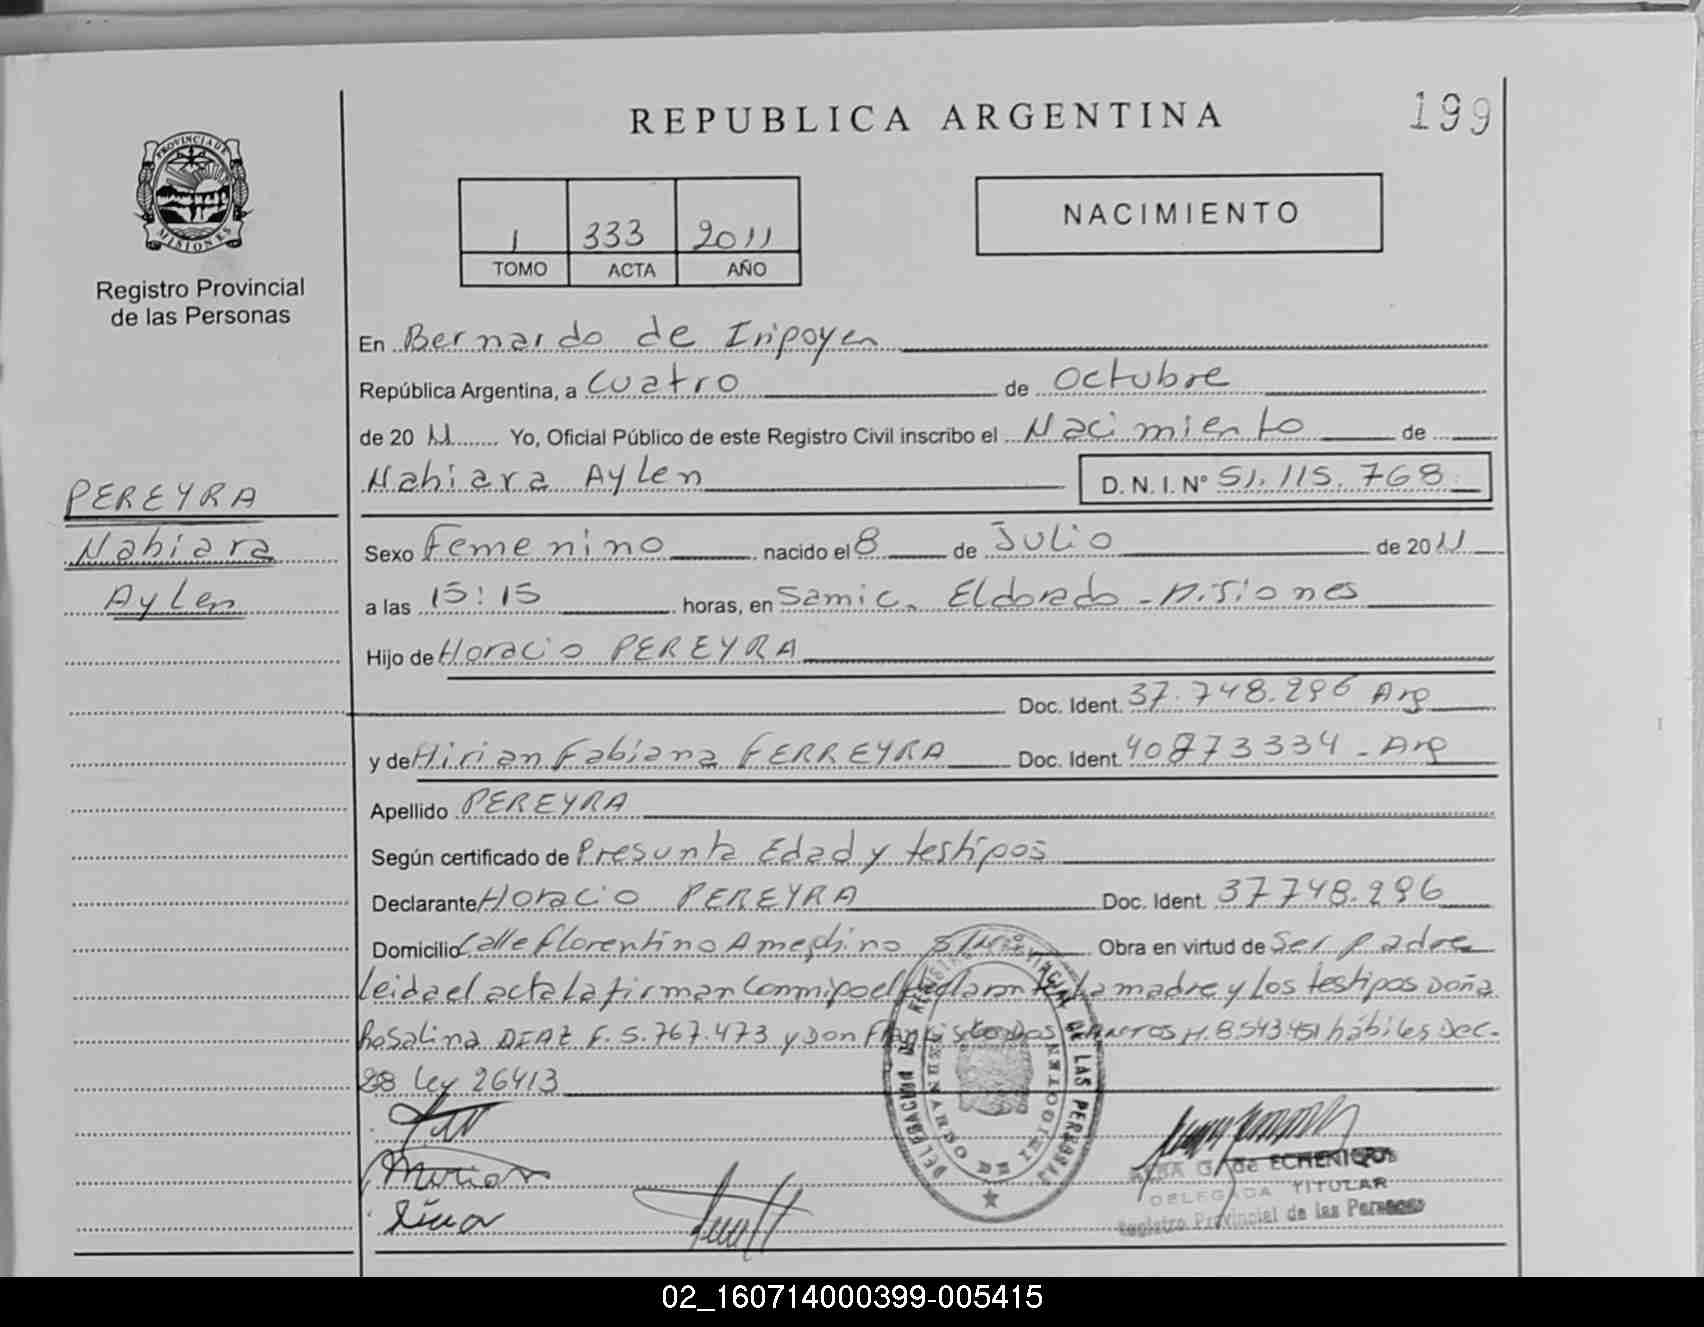 REPUBLICA ARGENTINA
199
PROVINCIA DE
MISIONES
Registro Provincial
de las Personas
1 333 2011
TOMO ACTA AÑO
NACIMIENTO
En Bernardo de Iripoyen
República Argentina, a Cuatro de Octubre
de 20 11 Yo, Oficial Público de este Registro Civil inscribo el Nacimiento de
Nahiara Aylen D. N. I. N° 51.115.768
PEREYRA
Nahiara
Aylen
Sexo Femenino nacido el 8 de Julio de 20 11
a las 15:15 horas, en Samic. Eldorado - Misiones
Hijo de Horacio PEREYRA
Doc. Ident. 37.748.296 Arg
y de Mirian Fabiana FERREYRA Doc. Ident. 40873334 - Arg
Apellido PEREYRA
Según certificado de Presunta Edad y testipos
Declarante Horacio PEREYRA Doc. Ident. 37748.296
Domicilio Calle Florentino Ameghino S/Nº Obra en virtud de Ser padre
leida el acta la firman Conmipo el declarante la madre y los testipos Doña
Rosalina DIAZ F. 5.767.473 y Don Francisco Dos SANTOS M. 8.543.451 hábiles Dec.
28 Ley 26413
Mirian
DE LAS PERSONAS
G. de ECHENIQUE
DELEGADA TITULAR
Registro Provincial de las Personas
02_160714000399-005415